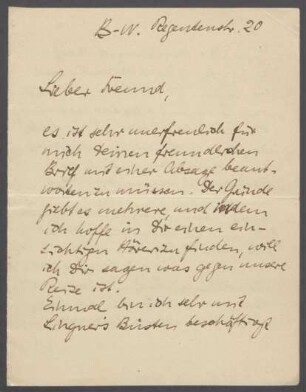 B-W. Regentenstr. 20
Lieber Freund,
es ist sehr unerfreulich für
mich Deinen freundlichen
Brief mit einer Absage beant-
worten zu müssen. Der Gründe
giebt es mehrere und indem
ich hoffe in Dir einen ein-
sichtigen Hörer zu finden, will
ich Dir sagen was gegen unsere
Reise ist.
Einmal bin ich sehr mit
Lingner's Büsten beschäftigt